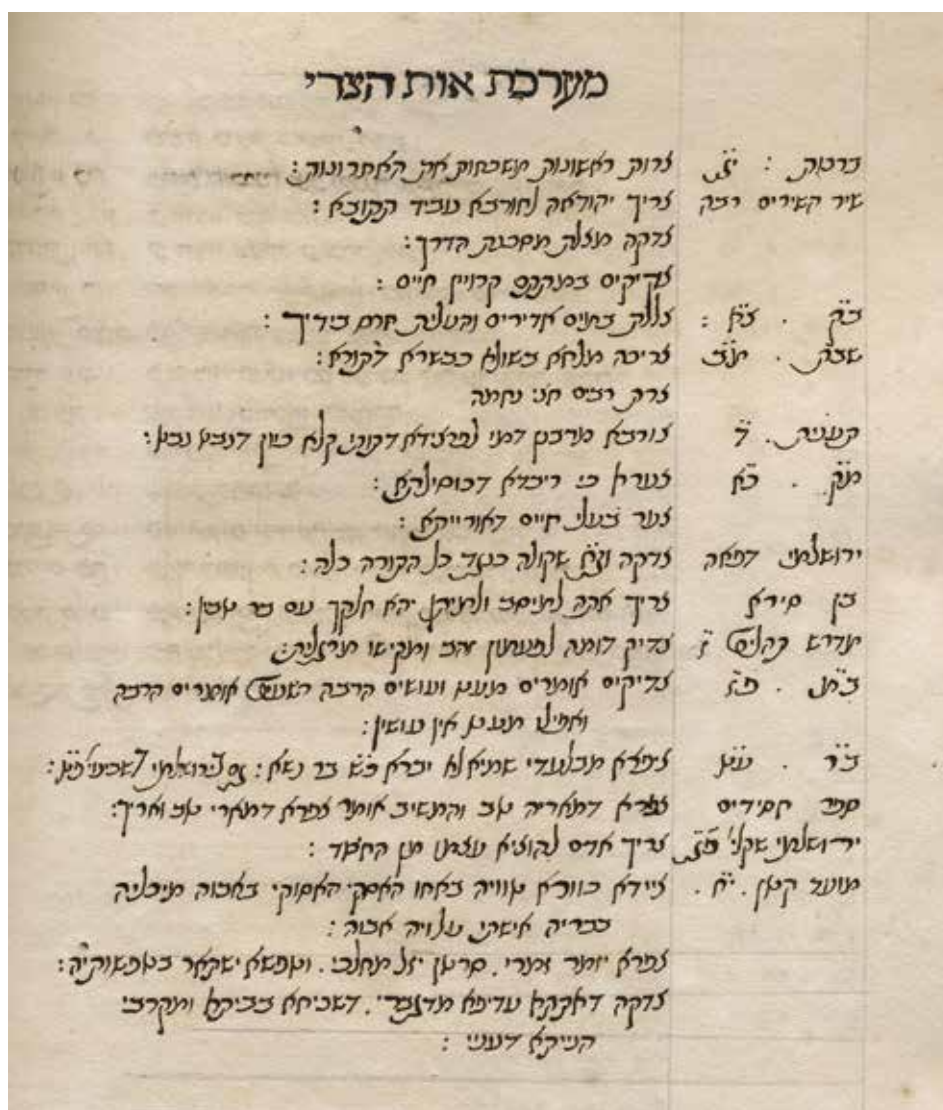 מערכת אות הצדי
ברכות : יג צרות ראשונות משכחות את האחרונות :
שיר השירים רבה צריך יהודאה לחורבא עביד
צדקה מצלת מסכנת הדרך :
צדיקים במיתתם קרויין חיים :
צללת במים אדירים והעלית חרס בידיך :
שבת . צריכה מלחא בשולא כבשרא דתורא :
צרת רבים חצי נחמה
תענית . ד צורבא מרבנן דמי לפרצידא דתותי קלא כיון דנבט נבט :
צערא כי ריבדא דכוסילתא :
צער בעלי חיים דאורייתא :
ירושלמי דפאה צדקה שקולה כנגד כל התורה כלה :
בן סירא צריך אתה
מדרש צדיק דומה לפעמון זהב מרגלית :
צדיקים אומרים מעט ועושים הרבה אומרים הרבה
ואפילו מעט אין עושין :
ציפרא מבלעדי שמיא לא יברא בר נשא :
ספר חסידים צפרא דמאריה טב והמשיב אומר צפרא דמארי טב ואריך :
ירושלמי שקלי' צריך אדם להוציא עצמו מן החשד :
מועד קטן . יא . ציידא כוורא טוויה באחוה אסקיה באבוה מיכליה
בבריה אישתי עלויה אבוה :
צפרא יומר זמרי . סרטן יזל מחלכי . וטפשא ישקאר בטפשותיה :
צדקה דאתתא עדיפא מדגברי . דשכיחא בביתא ומקרבי
הנייתא דעניי :